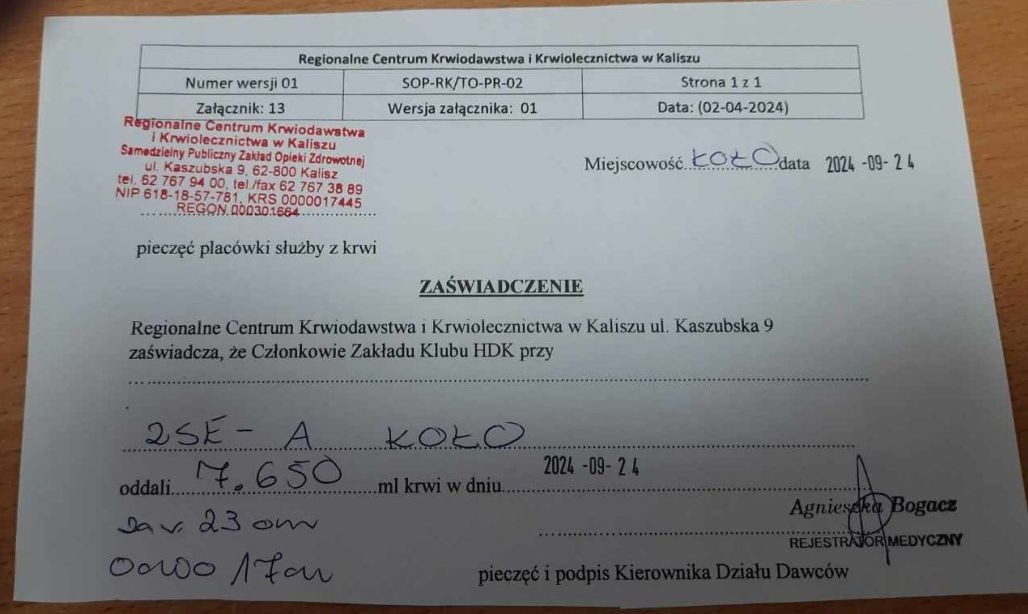 Regionalne Centrum Krwiodawstwa i Krwiolecznictwa w Kaliszu
Numer wersji 01 SOP-RK/TO-PR-02 Strona 1 z 1
Załącznik: 13 Wersja załącznika: 01 Data: (02-04-2024)
Regionalne Centrum Krwiodawstwa
i Krwiolecznictwa w Kaliszu
Samodzielny Publiczny Zakład Opieki Zdrowotnej
ul. Kaszubska 9, 62-800 Kalisz
tel. 62 767 94 00, tel./fax 62 767 38 89
NIP 618-18-57-781, KRS 0000017445
REGON 000301664
Miejscowość KOŁO data 2024 -09- 2 4
pieczęć placówki służby z krwi
ZAŚWIADCZENIE
Regionalne Centrum Krwiodawstwa i Krwiolecznictwa w Kaliszu ul. Kaszubska 9
zaświadcza, że Członkowie Zakładu Klubu HDK przy
2SE- A KOŁO
oddali 7.650 ml krwi w dniu 2024 -09- 2 4
23
Agnieszka Bogacz
REJESTRATOR MEDYCZNY
17
pieczęć i podpis Kierownika Działu Dawców